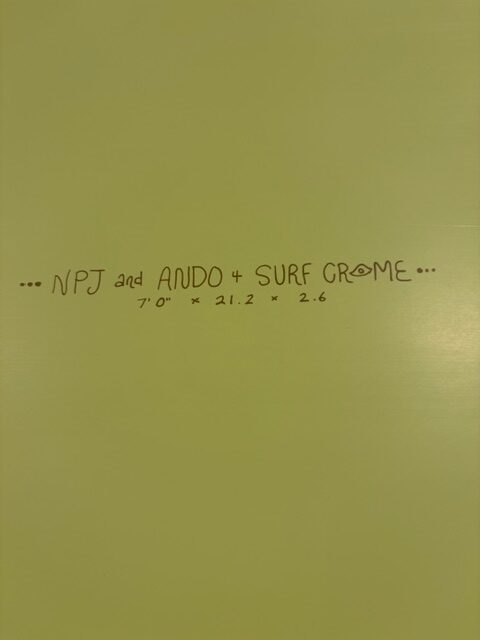 ••• NPJ and ANDO + SURF CROME •••
7'0" × 21.2 × 2.6